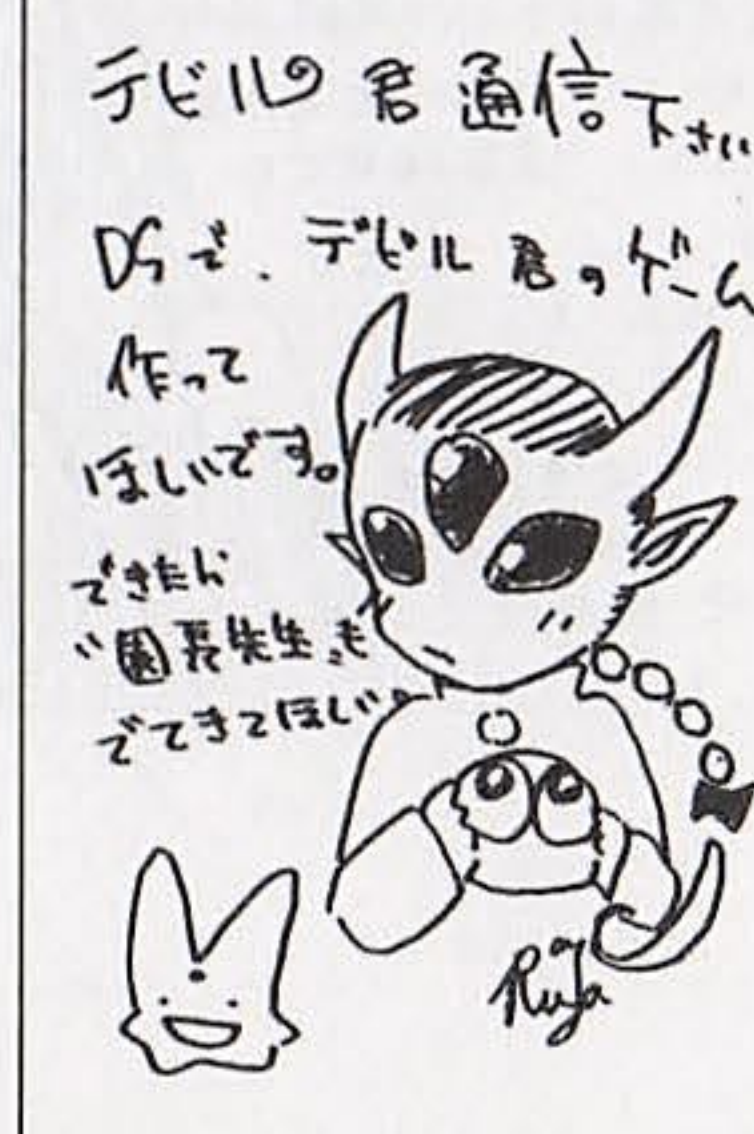 デビル君通信下さい
DSで、デビル君のゲーム
作って
ほしいです。
できたら
"園長先生"も
でてきてほしい。
Ruja